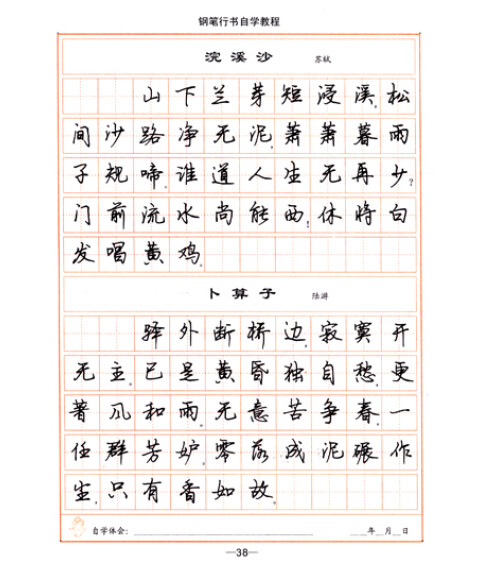 钢笔行书自学教程
浣溪沙 苏轼
山下兰芽短浸溪,松
间沙路净无泥,萧萧暮雨
子规啼。谁道人生无再少?
门前流水尚能西!休将白
发唱黄鸡。
卜算子 陆游
驿外断桥边,寂寞开
无主。已是黄昏独自愁,更
著风和雨。无意苦争春,一
任群芳妒。零落成泥碾作
尘,只有香如故。
自学体会: 年 月 日
—38—